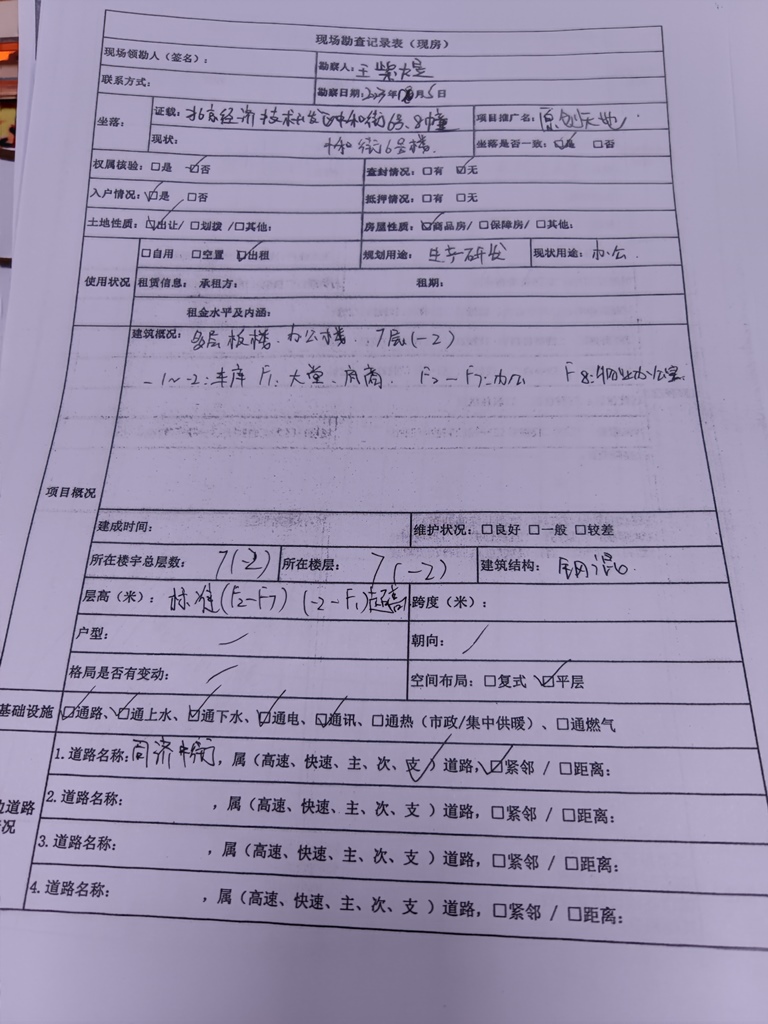 现场勘查记录表（现房）
现场领勘人（签名）： 勘察人：王紫大是
联系方式： 勘察日期：2023年 月5日
坐落： 证载：北京经济技术开发区中和街6号、8幢 项目推广名：原创天地
现状： 中和街6号楼. 坐落是否一致：☑是 □否
权属核验：□是 ☑否 查封情况：□有 ☑无
入户情况：☑是 □否 抵押情况：□有 □无
土地性质：☑出让/ □划拨 /□其他： 房屋性质：☑商品房/ □保障房/ □其他：
使用状况 □自用 □空置 ☑出租 规划用途： 生产研发 现状用途：办公.
租赁信息： 承租方： 租期：
租金水平及内涵：
项目概况 建筑概况： 多层板楼、办公楼、7层(-2)
-1~-2:车库 F1:大堂、底商. F2-F7:办公 F8:物业办公室.
建成时间： 维护状况：□良好 □一般 □较差
所在楼宇总层数： 7(-2) 所在楼层： 7(-2) 建筑结构： 钢混.
层高（米）： 标准(F2-F7) (-2-F1)超高 跨度（米）：
户型： / 朝向： /
格局是否有变动： / 空间布局：□复式 ☑平层
基础设施 ☑通路、☑通上水、☑通下水、☑通电、☑通讯、□通热（市政/集中供暖）、□通燃气
边道路
情况
1.道路名称：同济中街，属（高速、快速、主、次、支✓）道路，☑紧邻 / □距离：
2.道路名称： ，属（高速、快速、主、次、支 ）道路，□紧邻 / □距离：
3.道路名称： ，属（高速、快速、主、次、支 ）道路，□紧邻 / □距离：
4.道路名称： ，属（高速、快速、主、次、支 ）道路，□紧邻 / □距离：